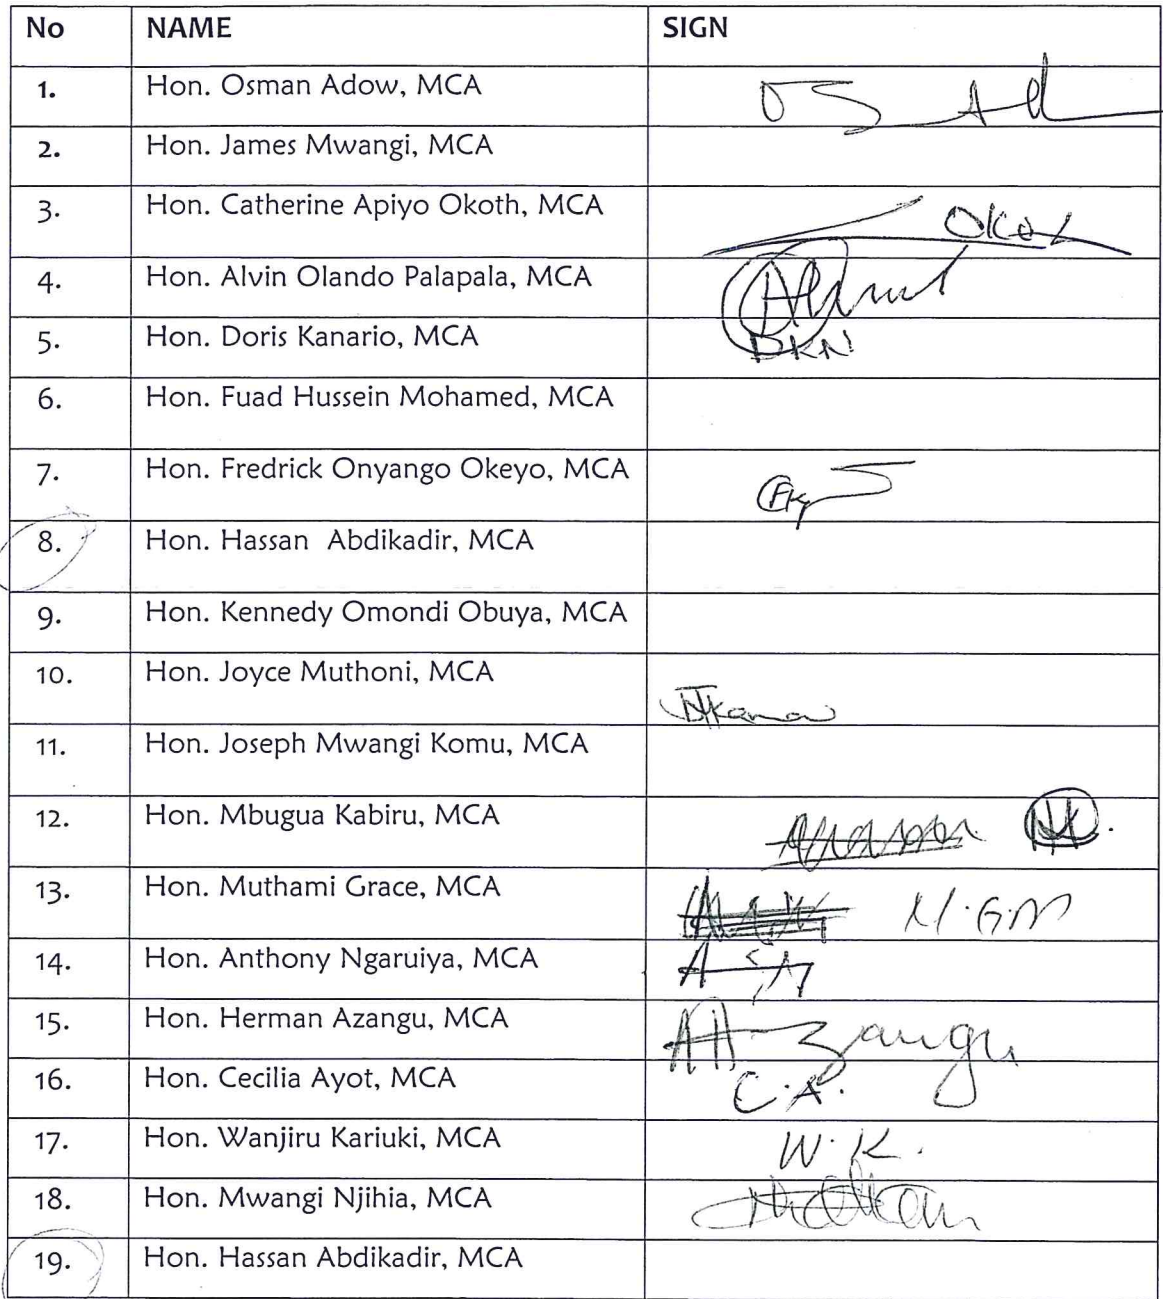 No NAME SIGN
1. Hon. Osman Adow, MCA
2. Hon. James Mwangi, MCA
3. Hon. Catherine Apiyo Okoth, MCA
4. Hon. Alvin Olando Palapala, MCA
5. Hon. Doris Kanario, MCA DKN
6. Hon. Fuad Hussein Mohamed, MCA
7. Hon. Fredrick Onyango Okeyo, MCA
8. Hon. Hassan Abdikadir, MCA
9. Hon. Kennedy Omondi Obuya, MCA
10. Hon. Joyce Muthoni, MCA
11. Hon. Joseph Mwangi Komu, MCA
12. Hon. Mbugua Kabiru, MCA
13. Hon. Muthami Grace, MCA M.G.M
14. Hon. Anthony Ngaruiya, MCA
15. Hon. Herman Azangu, MCA
16. Hon. Cecilia Ayot, MCA C.A.
17. Hon. Wanjiru Kariuki, MCA W.K.
18. Hon. Mwangi Njihia, MCA
19. Hon. Hassan Abdikadir, MCA